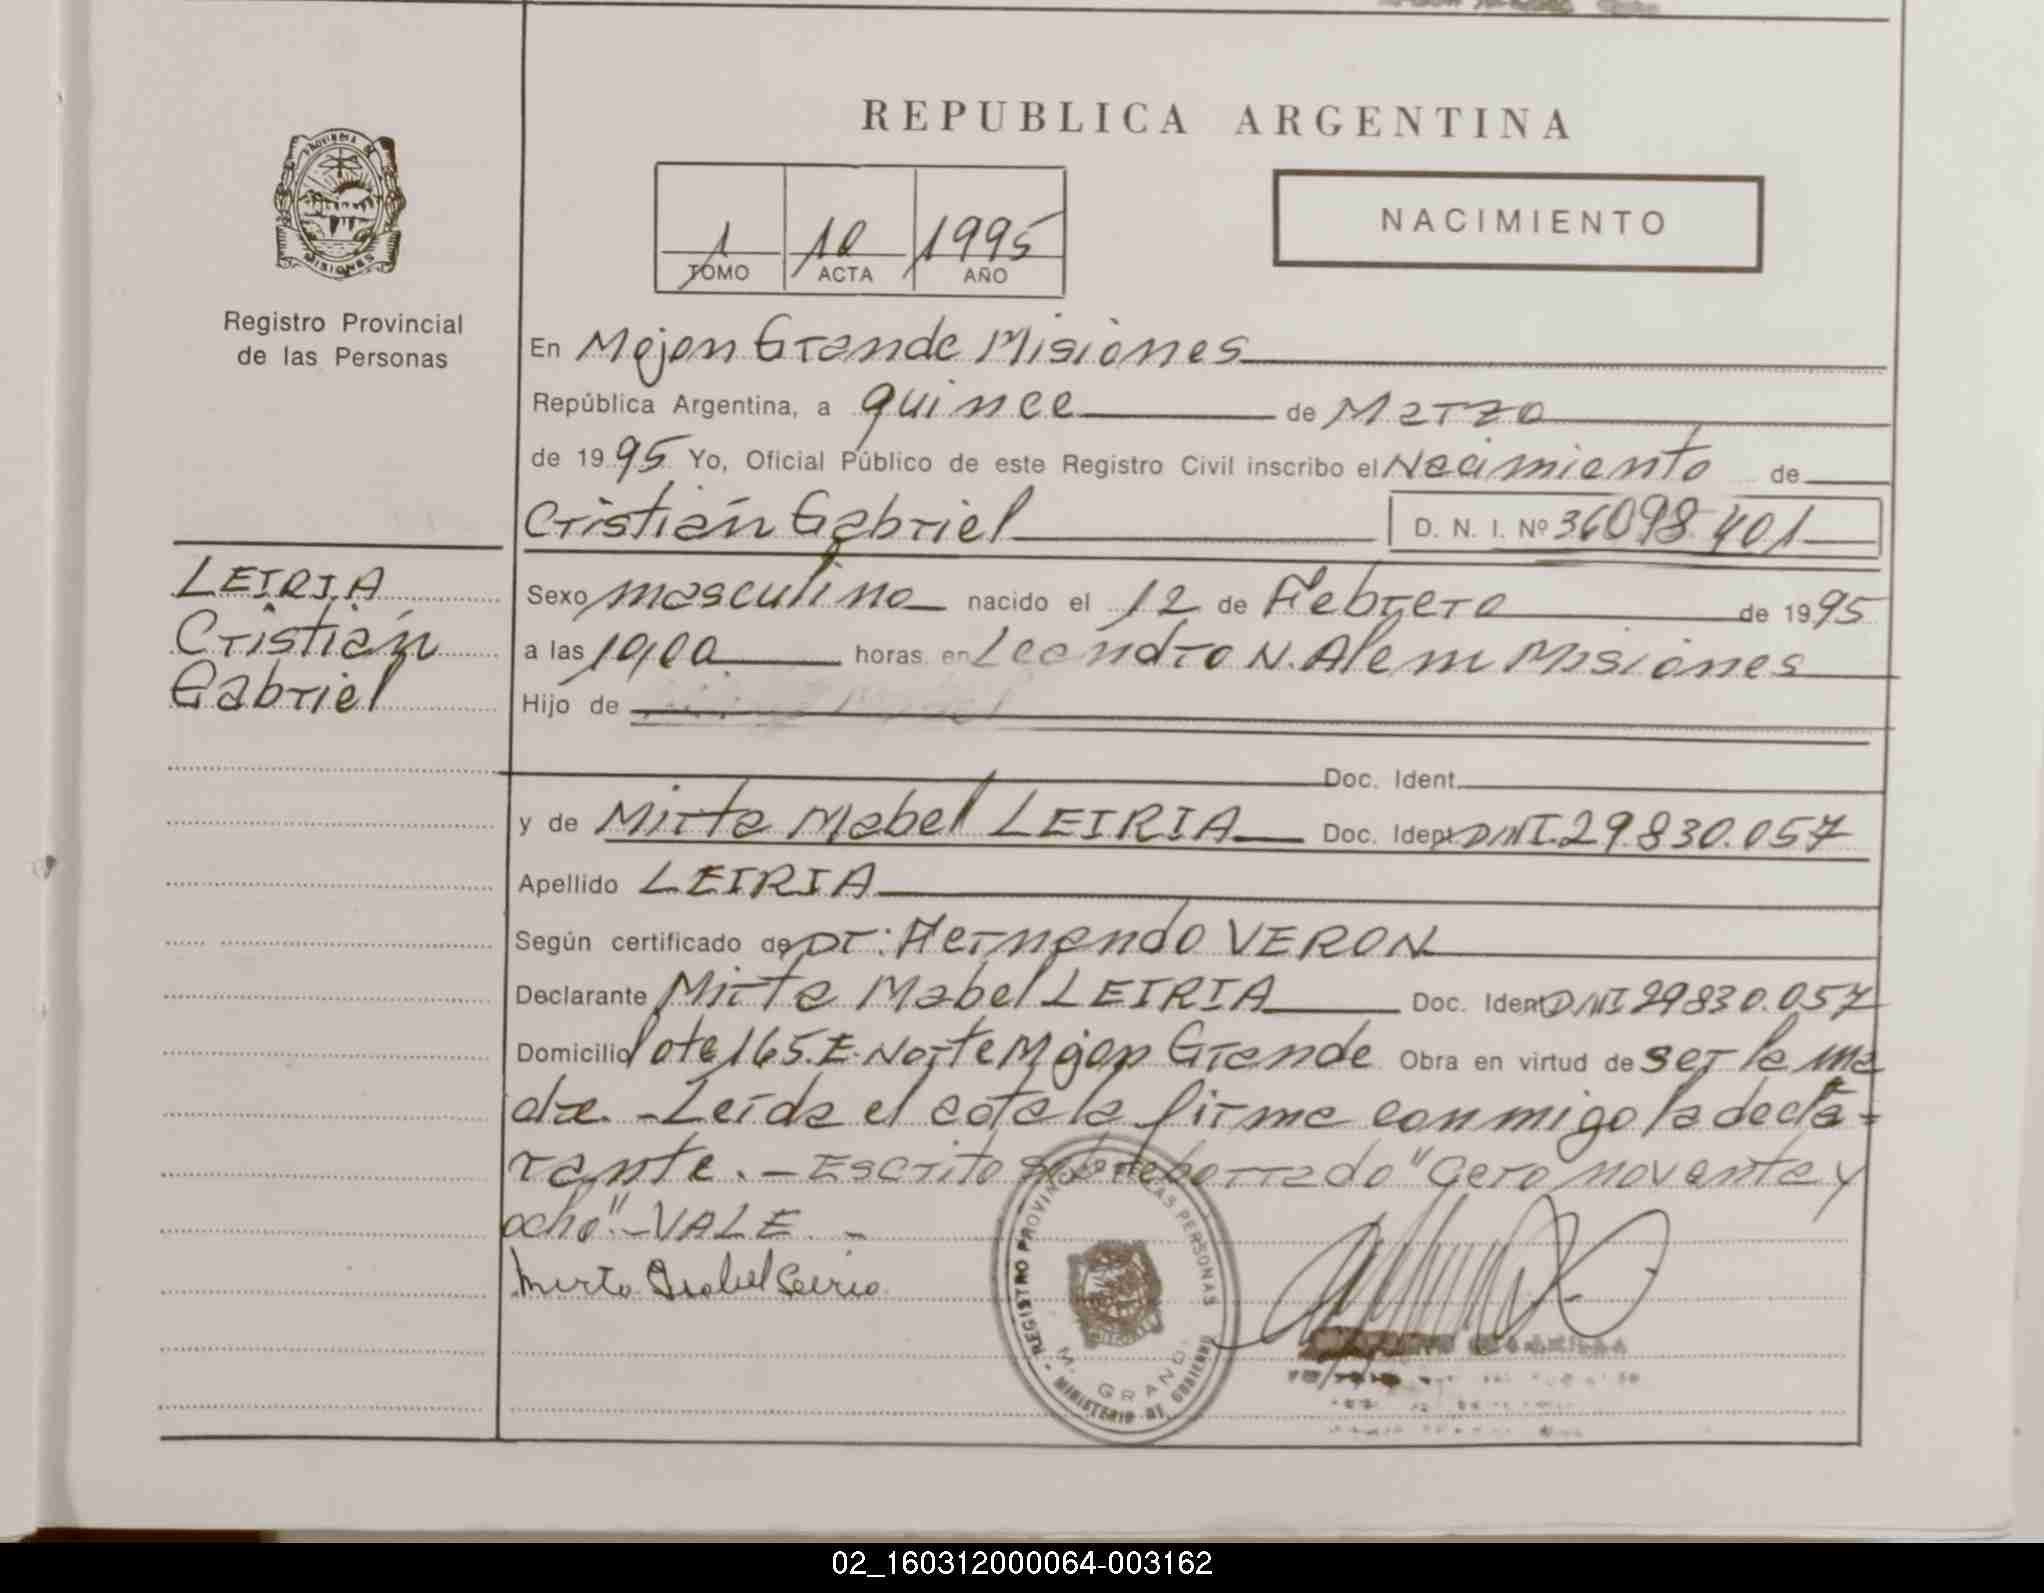 REPUBLICA ARGENTINA
NACIMIENTO
1 10 1995
TOMO ACTA AÑO
Registro Provincial
de las Personas
En Mojon Grande Misiones
República Argentina, a quince de Marzo
de 1995 Yo, Oficial Público de este Registro Civil inscribo el Nacimiento de
Cristián Gabriel D. N. I. Nº 36098401
LEIRIA
Cristián
Gabriel
Sexo masculino nacido el 12 de Febrero de 1995
a las horas en Leandro N. Alem Misiones
Hijo de
Doc. Ident.
y de Mirta Mabel LEIRIA Doc. Ident. DNI. 29.830.057
Apellido LEIRIA
Según certificado de Dr: Hernando VERON
Declarante Mirta Mabel LEIRIA Doc. Ident. DNI 29830.057
Domicilio lote 165. E. Norte Mojon Grande Obra en virtud de ser la ma
dre. - Leída el acta la firma conmigo la decla=
rante. - Escrito sobre borrado "cero noventa y
ocho" - VALE. -
REGISTRO PROVINCIAL DE LAS PERSONAS
M. GRANDE
MINISTERIO DE GOBIERNO
02_160312000064-003162